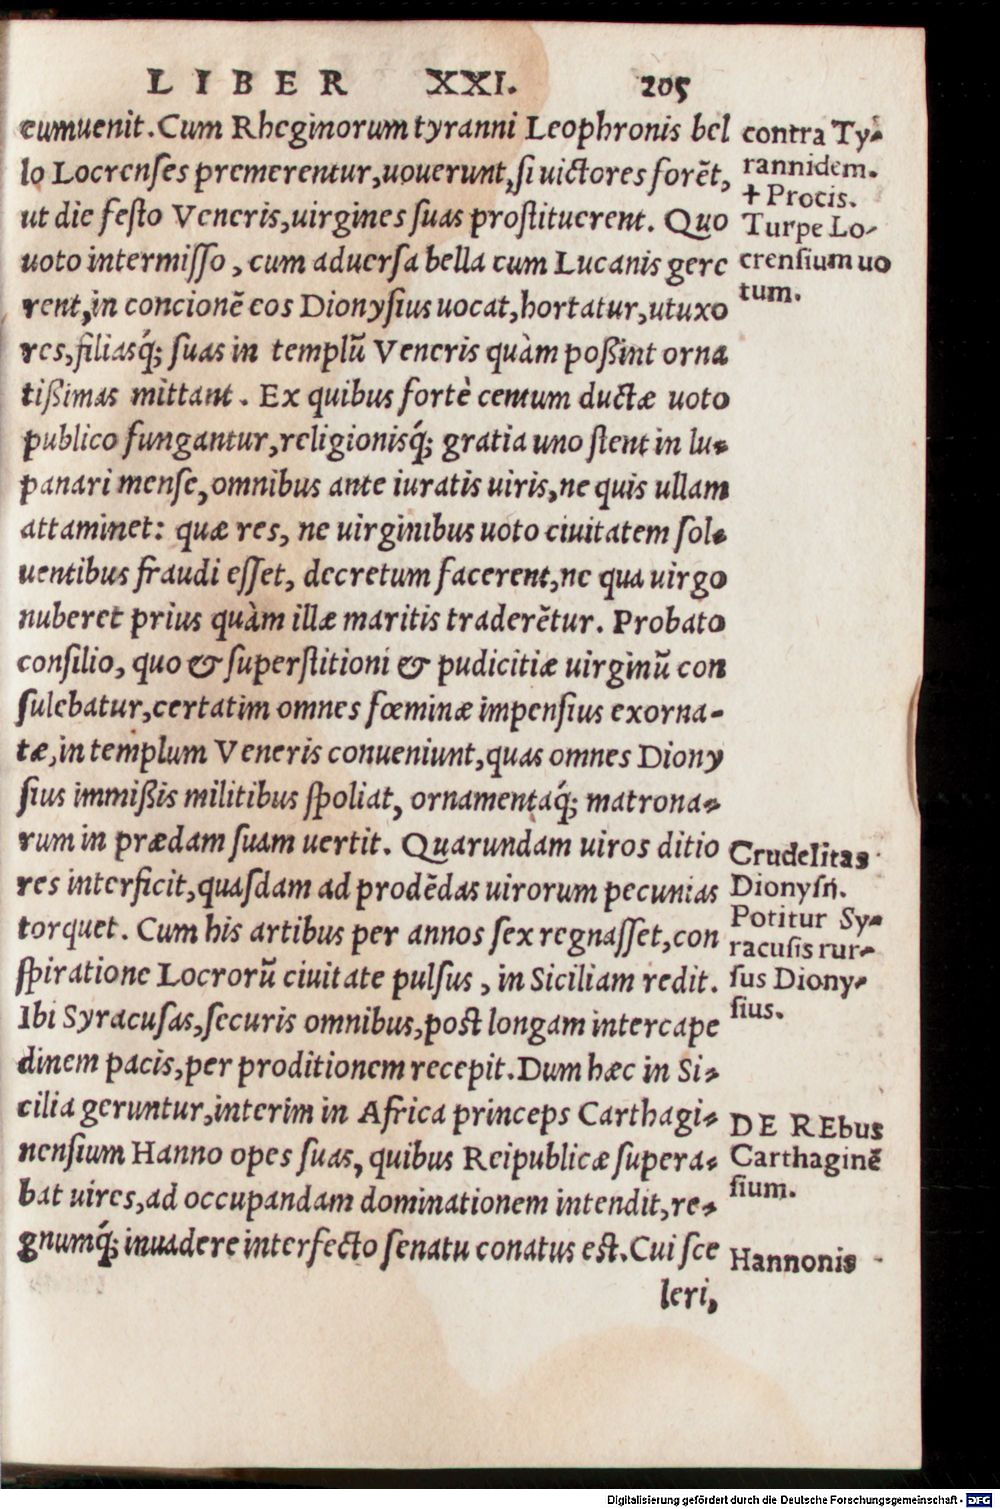 LIBER XXI. 205
cumuenit. Cum Rheginorum tyranni Leophronis bel
lo Locrenses premerentur, uouerunt, si uictores forēt,
ut die festo Veneris, uirgines suas prostituerent. Quo
uoto intermisso, cum aduersa bella cum Lucanis gere
rent, in concionē eos Dionysius uocat, hortatur, ut uxo
res, filiasq́; suas in templū Veneris quàm poßint orna
tißimas mittant. Ex quibus fortè centum ductæ uoto
publico fungantur, religionisq́; gratia uno stent in lu-
panari mense, omnibus ante iuratis uiris, ne quis ullam
attaminet: quæ res, ne uirginibus uoto ciuitatem sol-
uentibus fraudi esset, decretum facerent, ne qua uirgo
nuberet prius quàm illæ maritis traderētur. Probato
consilio, quo & superstitioni & pudicitiæ uirginū con
sulebatur, certatim omnes fœminæ impensius exorna-
tæ, in templum Veneris conueniunt, quas omnes Diony
sius immißis militibus spoliat, ornamentaq́; matrona-
rum in prædam suam uertit. Quarundam uiros ditio
res interficit, quasdam ad prodēdas uirorum pecunias
torquet. Cum his artibus per annos sex regnasset, con
spiratione Locrorū ciuitate pulsus, in Siciliam redit.
Ibi Syracusas, securis omnibus, post longam intercape
dinem pacis, per proditionem recepit. Dum hæc in Si-
cilia geruntur, interim in Africa princeps Carthagi-
nensium Hanno opes suas, quibus Reipublicæ supera-
bat uires, ad occupandam dominationem intendit, re-
gnumq́; inuadere interfecto senatu conatus est. Cui sce
leri,
contra Ty-
rannidem.
+ Procis.
Turpe Lo-
crensium uo
tum.
Crudelitas
Dionysij.
Potitur Sy-
racusis rur-
sus Diony-
sius.
DE REbus
Carthaginē
sium.
Hannonis
Digitalisierung gefördert durch die Deutsche Forschungsgemeinschaft - DFG